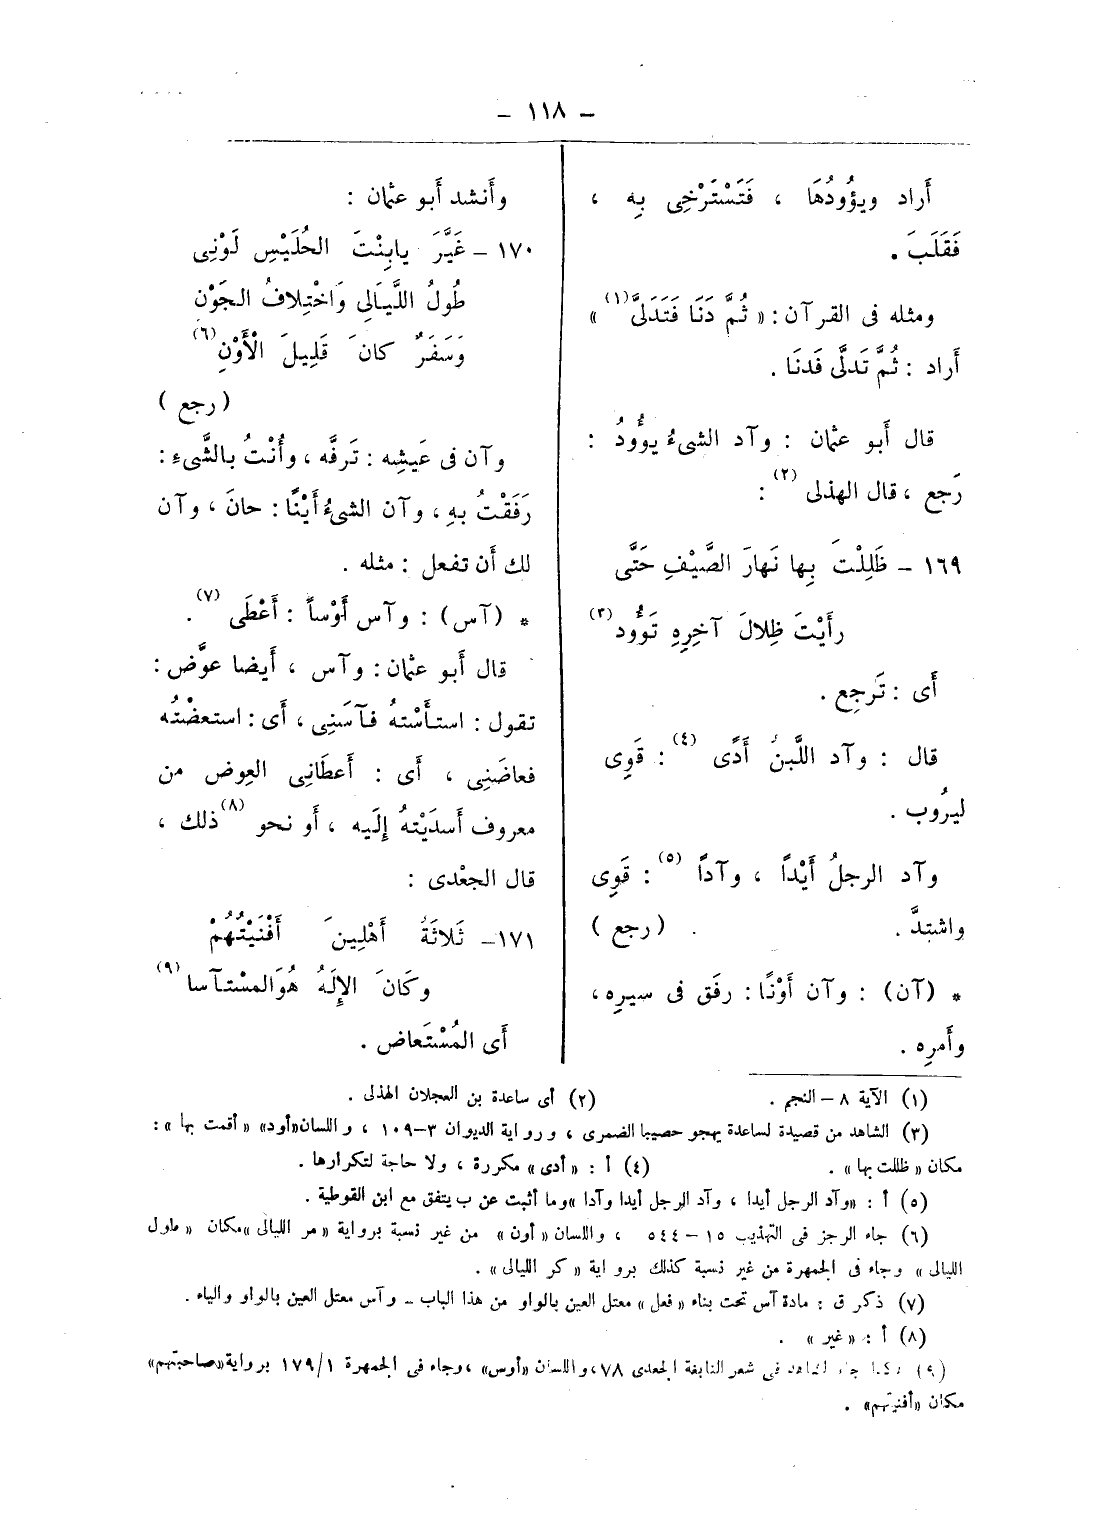 – ١١٨ –
أَراد ويؤُودُهَا ، فَتَسْتَرْخِى بِه ،
فَقَلَبَ .
ومثله فى القرآن : « ثُمَّ دَنَا فَتَدَلَّى (١) »
أَراد : ثُمَّ تَدلَّى فَدنَا .
قال أَبو عثمان : وآد الشىءُ يؤُودُ :
رَجع ، قال الهذلى (٢) :
١٦٩ – ظَلِلْتَ بِها نَهارَ الصَّيْفِ حَتَّى
رأَيْتَ ظِلالَ آخِرِهِ تَؤُود (٣)
أَى : تَرجِع .
قال : وآد اللَّبنُ أَدًى (٤) : قَوِى
ليرُوب .
وآد الرجلُ أَيْداً ، وآداً (٥) : قَوِى
واشتدَّ . ( رجع )
* (آن) : وآن أَوْنًا : رفَق فى سيرِه ،
وأَمرِه .
وأَنشد أَبو عثمان :
١٧٠ – غَيَّرَ يابِنْتَ الحُلَيْسِ لَوْنِى
طُولُ اللَّيَالِى وَاخْتِلافُ الجَوْنِ
وَسَفَرٌ كانَ قَلِيلَ الْأَوْنِ (٦)
( رجع )
وآن فى عَيشِه : تَرفَّه ، وأُنْتُ بالشَّىءِ :
رَفَقْتُ بِهِ ، وآن الشىءُ أَيْنًا : حانَ ، وآن
لك أَن تفعل : مثله .
* (آس) : وآس أَوْساً : أَعْطَى (٧) .
قال أَبو عثمان : وآس ، أَيضا عوَّض :
تقول : استأَسْتهُ فآسَنِى ، أَى : استعضْتُه
فعاضَنِى ، أَى : أَعطَانِى العِوض من
معروف أَسدَيْتهُ إِلَيه ، أَو نحو (٨) ذلك ،
قال الجعْدى :
١٧١ – ثَلاثَةُ أَهْلِينَ أَفْنَيْتُهُمْ
وكَانَ الإِلَهُ هُوَ المسْتآسا (٩)
أَى المُسْتَعاض .
(١) الآية ٨ – النجم . (٢) أى ساعدة بن العجلان الهذلى .
(٣) الشاهد من قصيدة لساعدة يهجو حصيبا الضمرى ، ورواية الديوان ٣–١٠٩ ، واللسان «أود» « أقمت بها » :
مكان « ظللت بها » . (٤) أ : « أدى » مكررة ، ولا حاجة لتكرارها .
(٥) أ : «وآد الرجل أيدا ، وآد الرجل أيدا وآدا » وما أثبت عن ب يتفق مع ابن القوطية .
(٦) جاء الرجز فى التهذيب ١٥ – ٥٤٤ ، واللسان « أون » من غير نسبة برواية « مر الليالى » مكان « طول
الليالى » وجاء فى الجمهرة من غير نسبة كذلك برواية « كر الليالى » .
(٧) ذكر ق : مادة آس تحت بناء « فعل » معتل العين بالواو من هذا الباب – وآس معتل العين بالواو والياء .
(٨) أ : « غير » .
(٩) هكذا جاء الشاهد فى شعر النابغة الجعدى ٧٨ ، واللسان «أوس» ، وجاء فى الجمهرة ١/١٧٩ برواية «صاحبتهم»
مكان «أفنيتهم» .